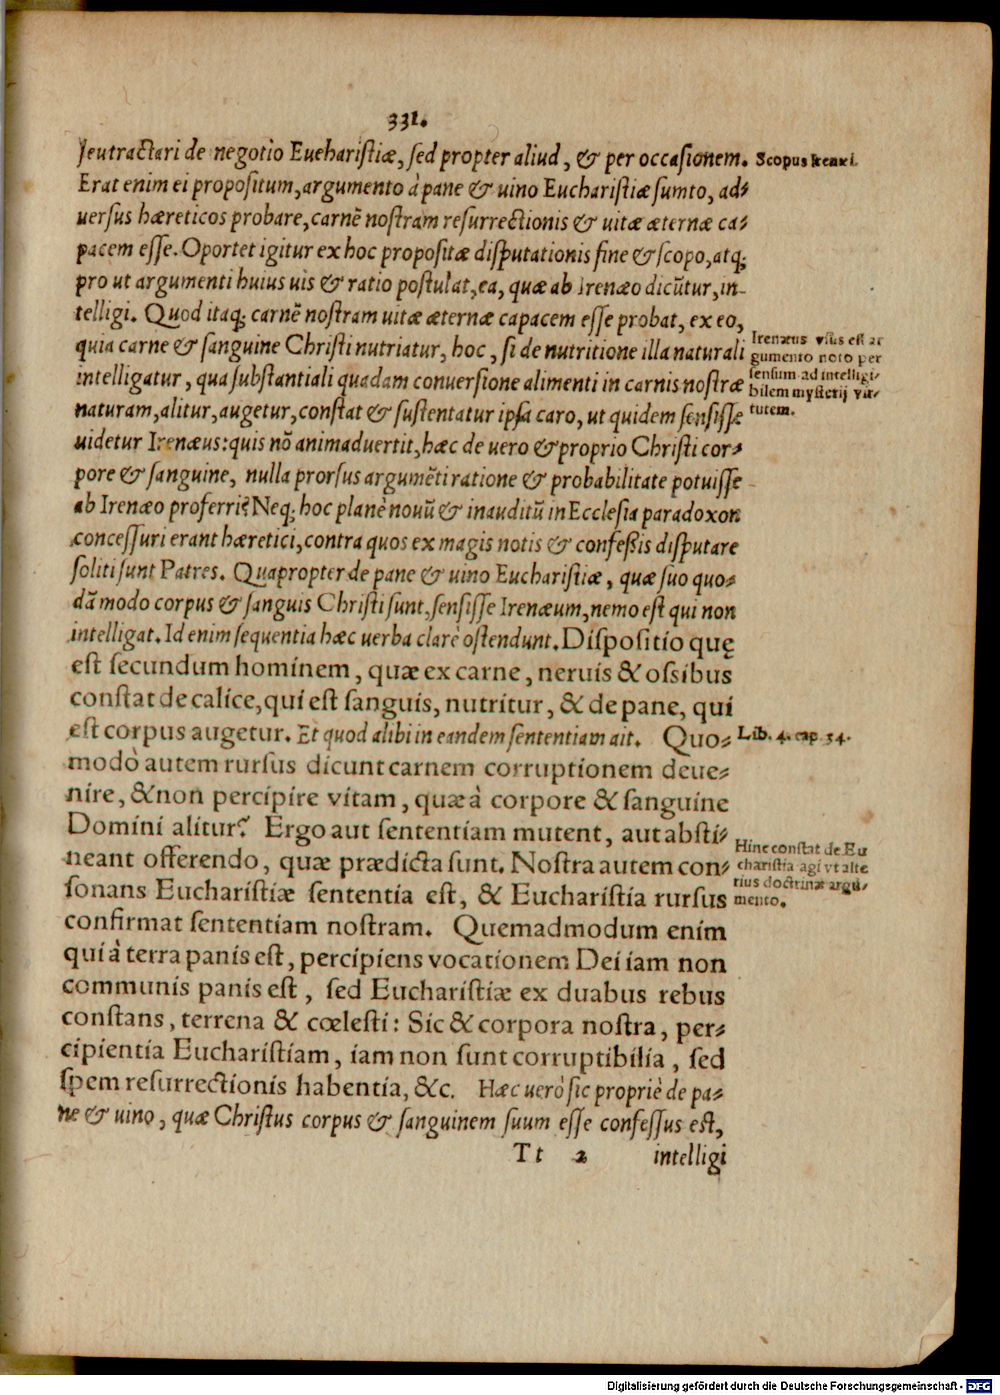 331.
seu tractari de negotio Eucharistiæ, sed propter aliud, & per occasionem.
Scopus Irenæi.
Erat enim ei propositum, argumento à pane & uino Eucharistiæ sumto, ad-
uersus hæreticos probare, carnē nostram resurrectionis & uitæ æternæ ca-
pacem esse. Oportet igitur ex hoc propositæ disputationis fine & scopo, atq;
pro ut argumenti huius uis & ratio postulat, ea, quæ ab Irenæo dicūtur, in-
telligi. Quod itaq; carnē nostram uitæ æternæ capacem esse probat, ex eo,
quia carne & sanguine Christi nutriatur, hoc, si de nutritione illa naturali
intelligatur, qua substantiali quadam conuersione alimenti in carnis nostræ
naturam, alitur, augetur, constat & sustentatur ipsa caro, ut quidem sensisse
Irenæus vsus est ar
gumento noto per
sensum ad intelligi-
bilem mysterij vir-
tutem.
uidetur Irenæus: quis nō animaduertit, hæc de uero & proprio Christi cor-
pore & sanguine, nulla prorsus argumēti ratione & probabilitate potuisse
ab Irenæo proferri? Neq; hoc planè nouū & inauditū in Ecclesia paradoxon
concessuri erant hæretici, contra quos ex magis notis & confeßis disputare
soliti sunt Patres. Quapropter de pane & uino Eucharistiæ, quæ suo quo-
dā modo corpus & sanguis Christi sunt, sensisse Irenæum, nemo est qui non
intelligat. Id enim sequentia hæc uerba clarè ostendunt. Dispositio quę
est secundum hominem, quæ ex carne, neruis & ossibus
constat de calice, qui est sanguis, nutritur, & de pane, qui
est corpus augetur. Et quod alibi in eandem sententiam ait. Quo-
Lib. 4. cap 34.
modò autem rursus dicunt carnem corruptionem deue-
nire, & non percipire vitam, quæ à corpore & sanguine
Domini alitur? Ergo aut sententiam mutent, aut absti-
neant offerendo, quæ prædicta sunt. Nostra autem con-
sonans Eucharistiæ sententia est, & Eucharistia rursus
Hinc constat de Eu
charistia agi vt alte
rius doctrinæ argu-
mento.
confirmat sententiam nostram. Quemadmodum enim
qui à terra panis est, percipiens vocationem Dei iam non
communis panis est, sed Eucharistiæ ex duabus rebus
constans, terrena & cœlesti: Sic & corpora nostra, per-
cipientia Eucharistiam, iam non sunt corruptibilia, sed
spem resurrectionis habentia, &c. Hæc uerò sic propriè de pa-
ne & uino, quæ Christus corpus & sanguinem suum esse confessus est,
Tt 2 intelligi
Digitalisierung gefördert durch die Deutsche Forschungsgemeinschaft - DFG